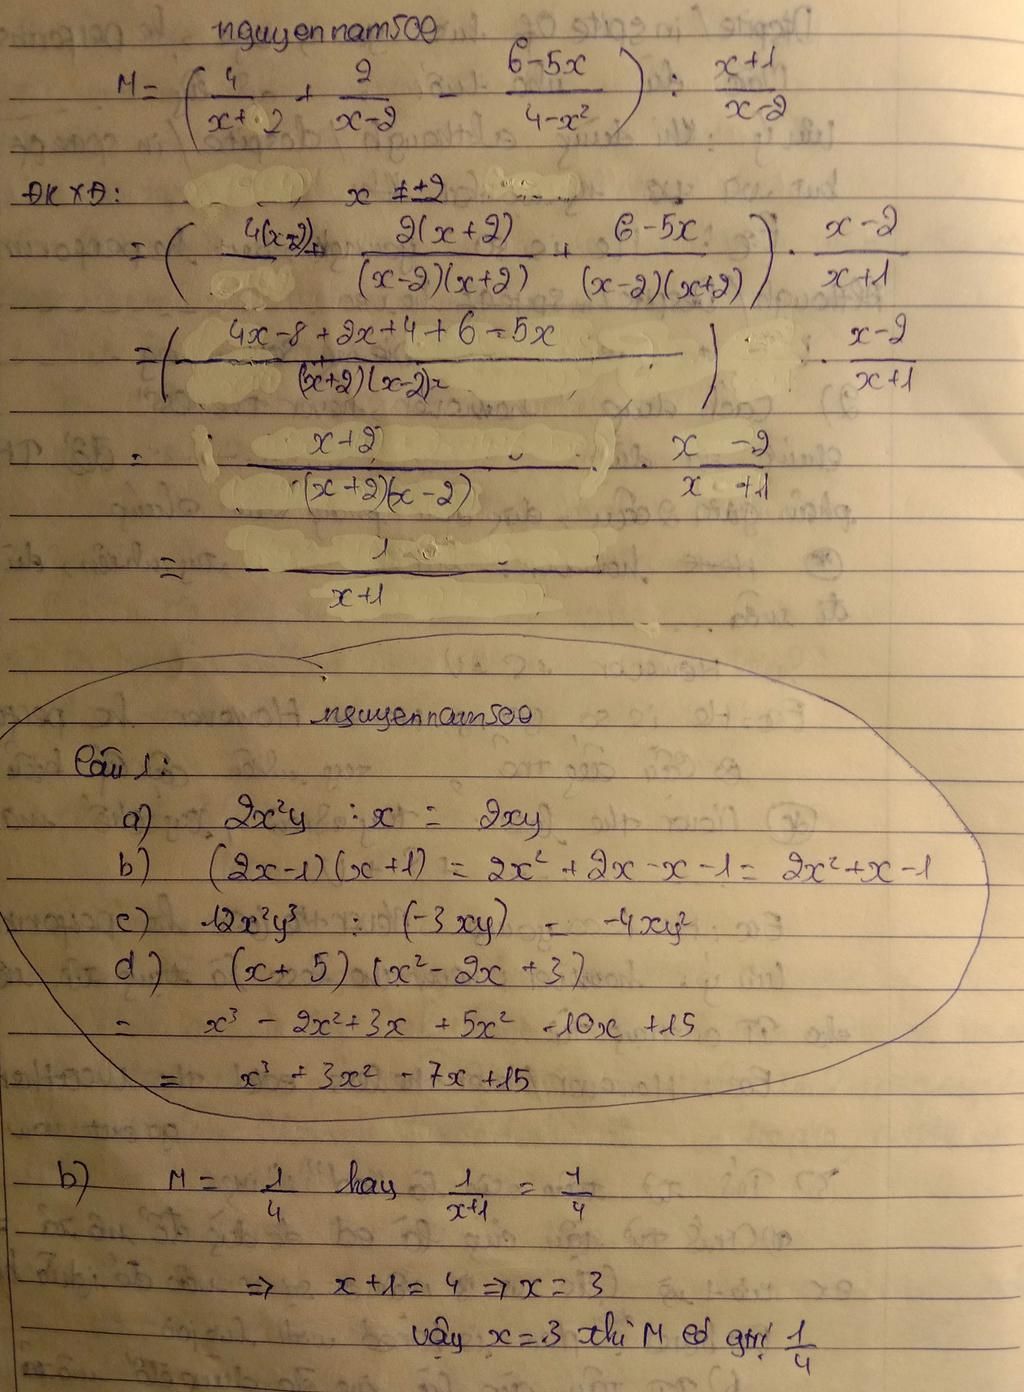 nguyennam500
M = ( 4/(x+2) + 2/(x-2) - (6-5x)/(4-x²) ) : (x+1)/(x-2)
ĐKXĐ: x ≠ ±2
= ( 4(x-2) + 2(x+2)/((x-2)(x+2)) + (6-5x)/((x-2)(x+2)) ) . (x-2)/(x+1)
= ( (4x-8+2x+4+6-5x)/((x+2)(x-2)) ) . (x-2)/(x+1)
= (x+2)/((x+2)(x-2)) . (x-2)/(x+1)
= 1/(x+1)
nguyennam500
Câu 1:
a) 2x²y : x = 2xy
b) (2x-1)(x+1) = 2x² + 2x - x - 1 = 2x² + x - 1
c) 12x²y³ : (-3xy) = -4xy²
d) (x+5)(x² - 2x + 3)
= x³ - 2x² + 3x + 5x² - 10x + 15
= x³ + 3x² - 7x + 15
b) M = 1/4 hay 1/(x+1) = 1/4
⇒ x+1 = 4 ⇒ x = 3
vậy x = 3 thì M có gtrị 1/4